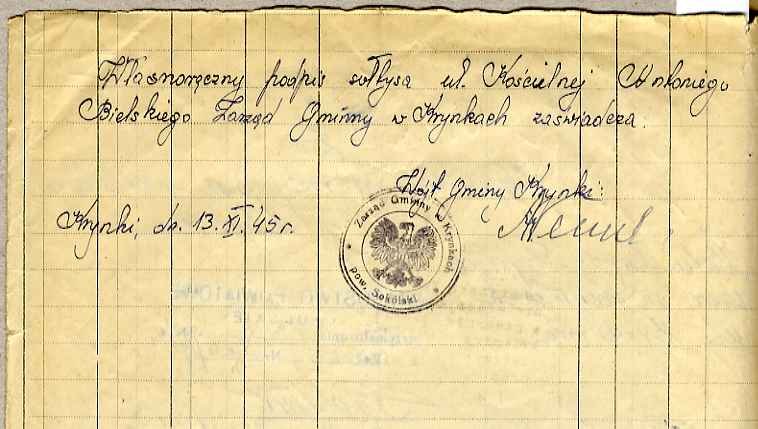 Własnoręczny podpis sołtysa ul. Kościelnej Antoniego
Bielskiego Zarząd Gminny w Krynkach zaświadcza.
Wójt Gminy Krynki:
Krynki, dn. 13. XI. 45 r.
Zarząd Gminy w Krynkach
pow. Sokólski